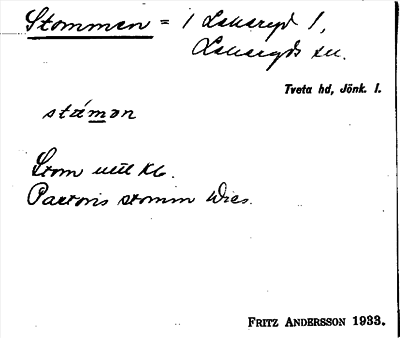 Stommen = 1 Lekeryd 1,
Lekeryds sn.
Tveta hd, Jönk. l.
stómən
Stom uti Kb.
Pastoris stomm Wies.
FRITZ ANDERSSON 1933.